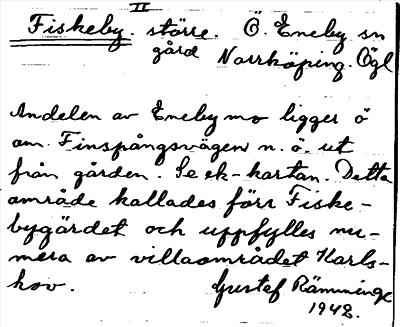 II
Fiskeby. större. Ö. Eneby sn
gård Norrköping. Ögl
Andelen av Eneby mo ligger ö
om Finspångsvägen n. ö. ut
från gården. Se ek-kartan. Detta
område kallades förr Fiske-
bygärdet och uppfylles nu-
mera av villaområdet Karls-
hov.
Gustef Ramminge
1942.